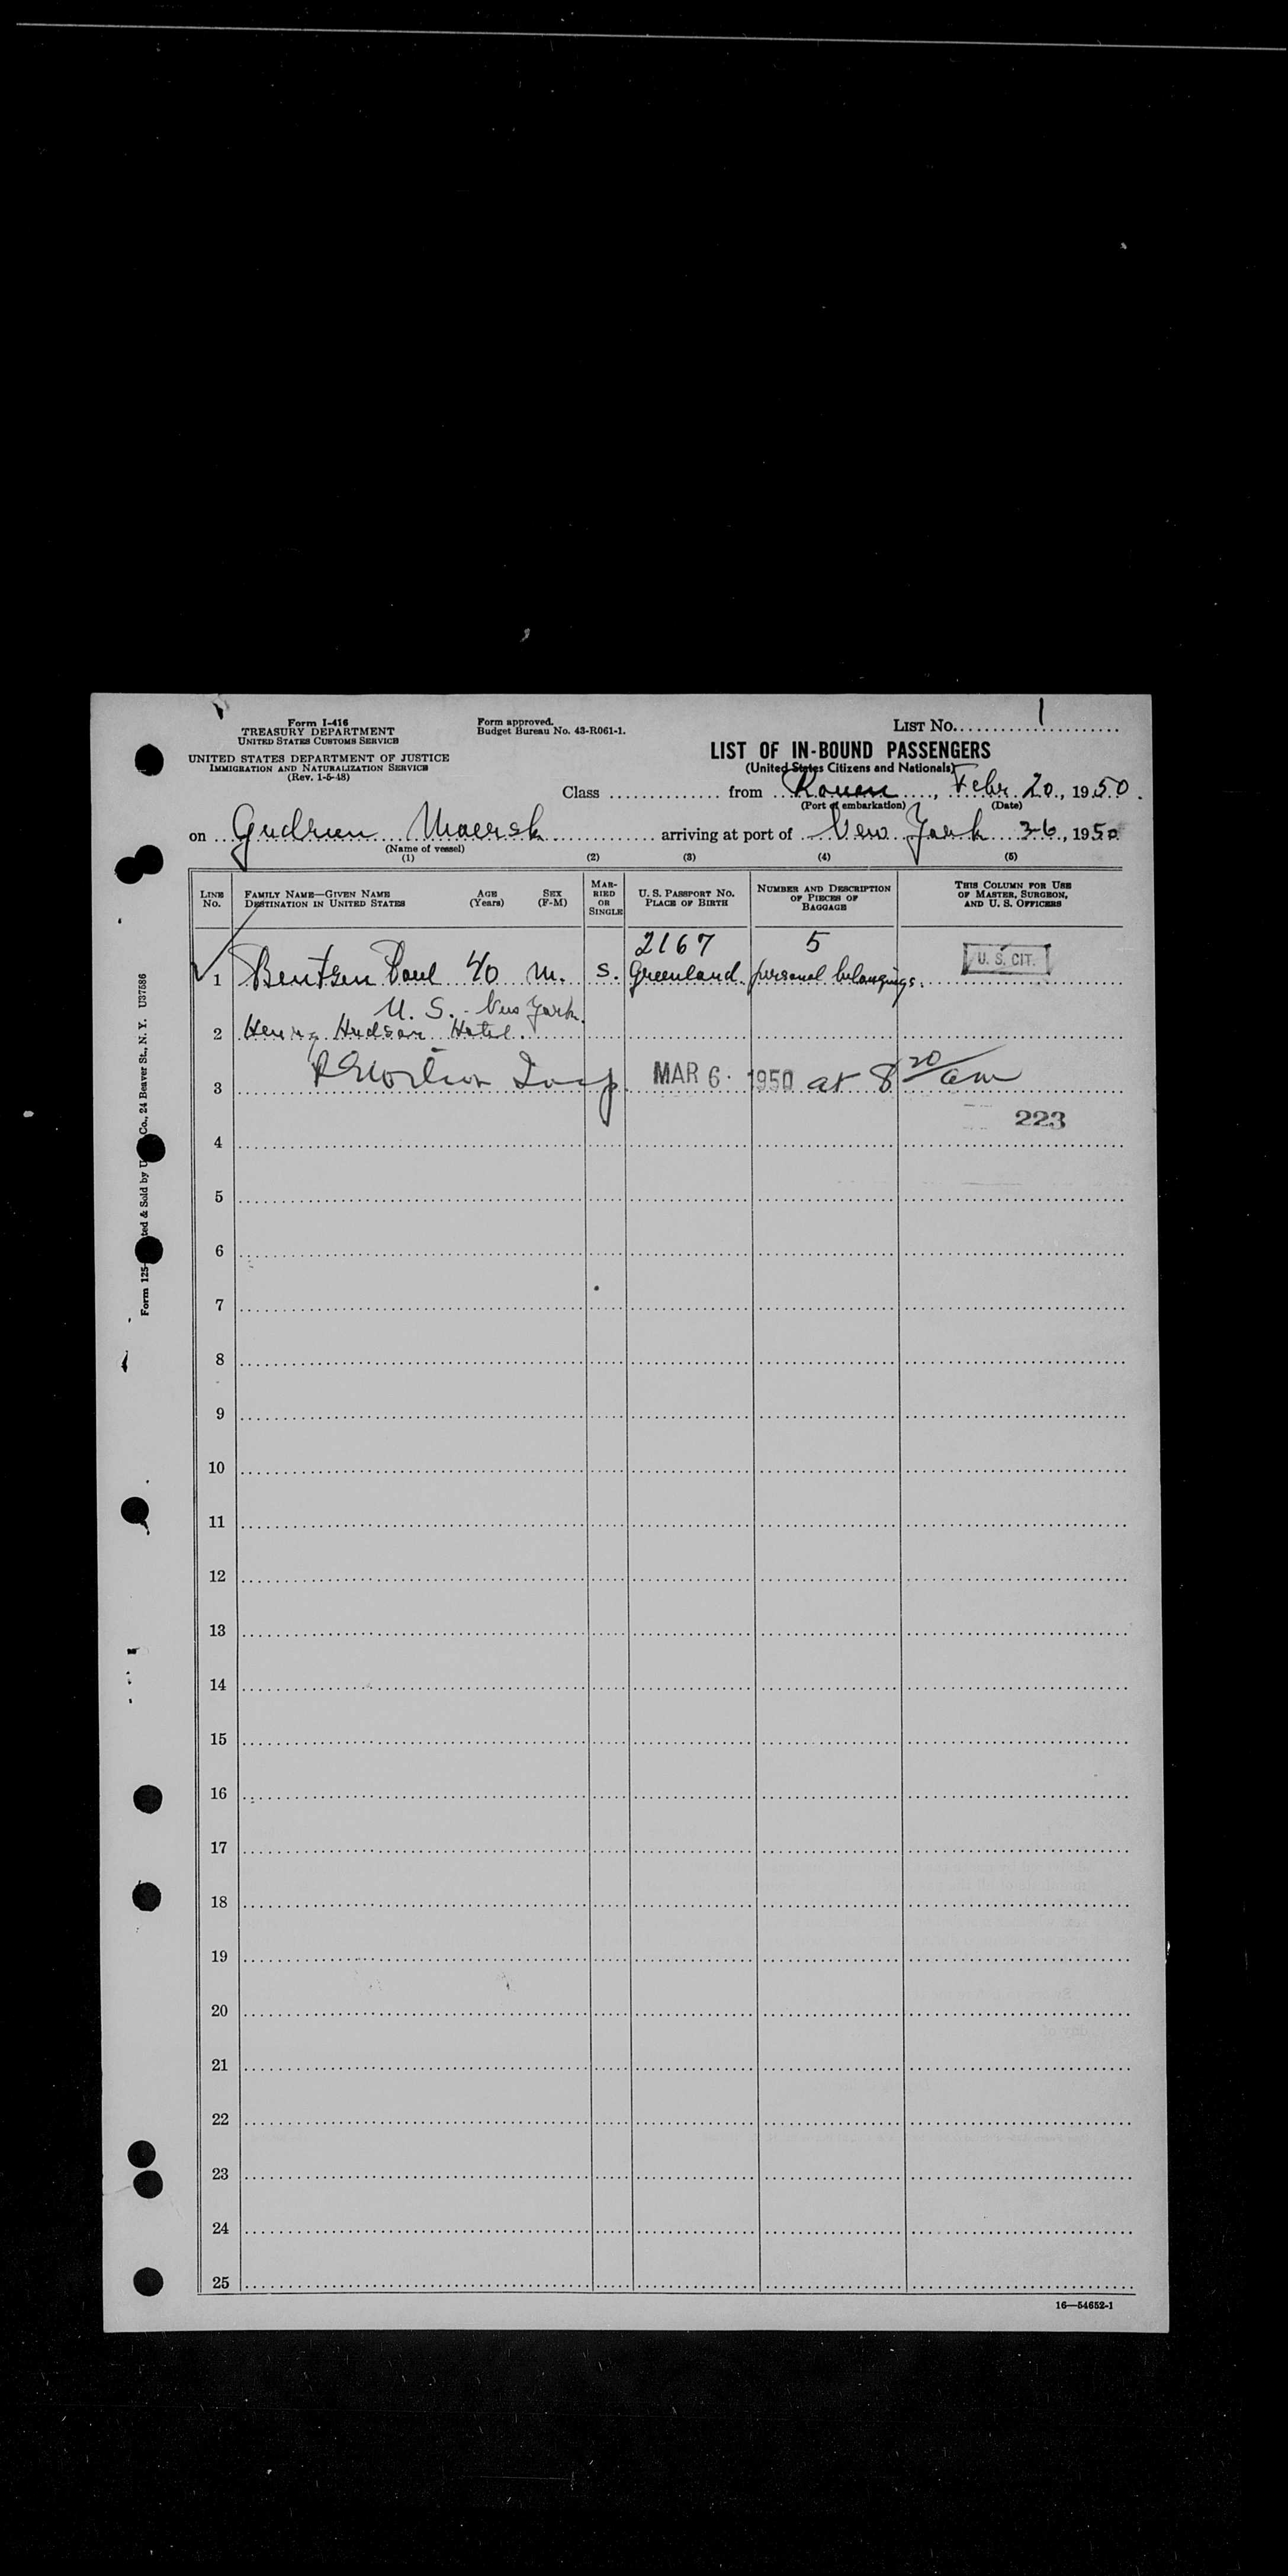 Form I-416
TREASURY DEPARTMENT
UNITED STATES CUSTOMS SERVICE
UNITED STATES DEPARTMENT OF JUSTICE
IMMIGRATION AND NATURALIZATION SERVICE
(Rev. 1-5-48)
Form approved.
Budget Bureau No. 43-R061-1.
LIST No. 1
LIST OF IN-BOUND PASSENGERS
(United States Citizens and Nationals)
Class from Rouen, Febr. 20, 1950.
(Port of embarkation) (Date)
on Gudrun Maersk arriving at port of New York 3-6, 1950
(Name of vessel)
(1) (2) (3) (4) (5)
LINE No. FAMILY NAME—GIVEN NAME DESTINATION IN UNITED STATES AGE (Years) SEX (F-M) MARRIED OR SINGLE U. S. PASSPORT No. PLACE OF BIRTH NUMBER AND DESCRIPTION OF PIECES OF BAGGAGE THIS COLUMN FOR USE OF MASTER, SURGEON, AND U. S. OFFICERS
2167 5
1 Bentzen Poul 40 M. S. Greenland. personal belongings. U. S. CIT.
U. S. New York.
2 Henry Hudson Hotel.
3 Insp. MAR 6 1950 at 8 20 am
223
4
5
6
7
8
9
10
11
12
13
14
15
16
17
18
19
20
21
22
23
24
25
16—54652-1
Form 125- ted & Sold by U Co., 24 Beaver St., N. Y. U37586